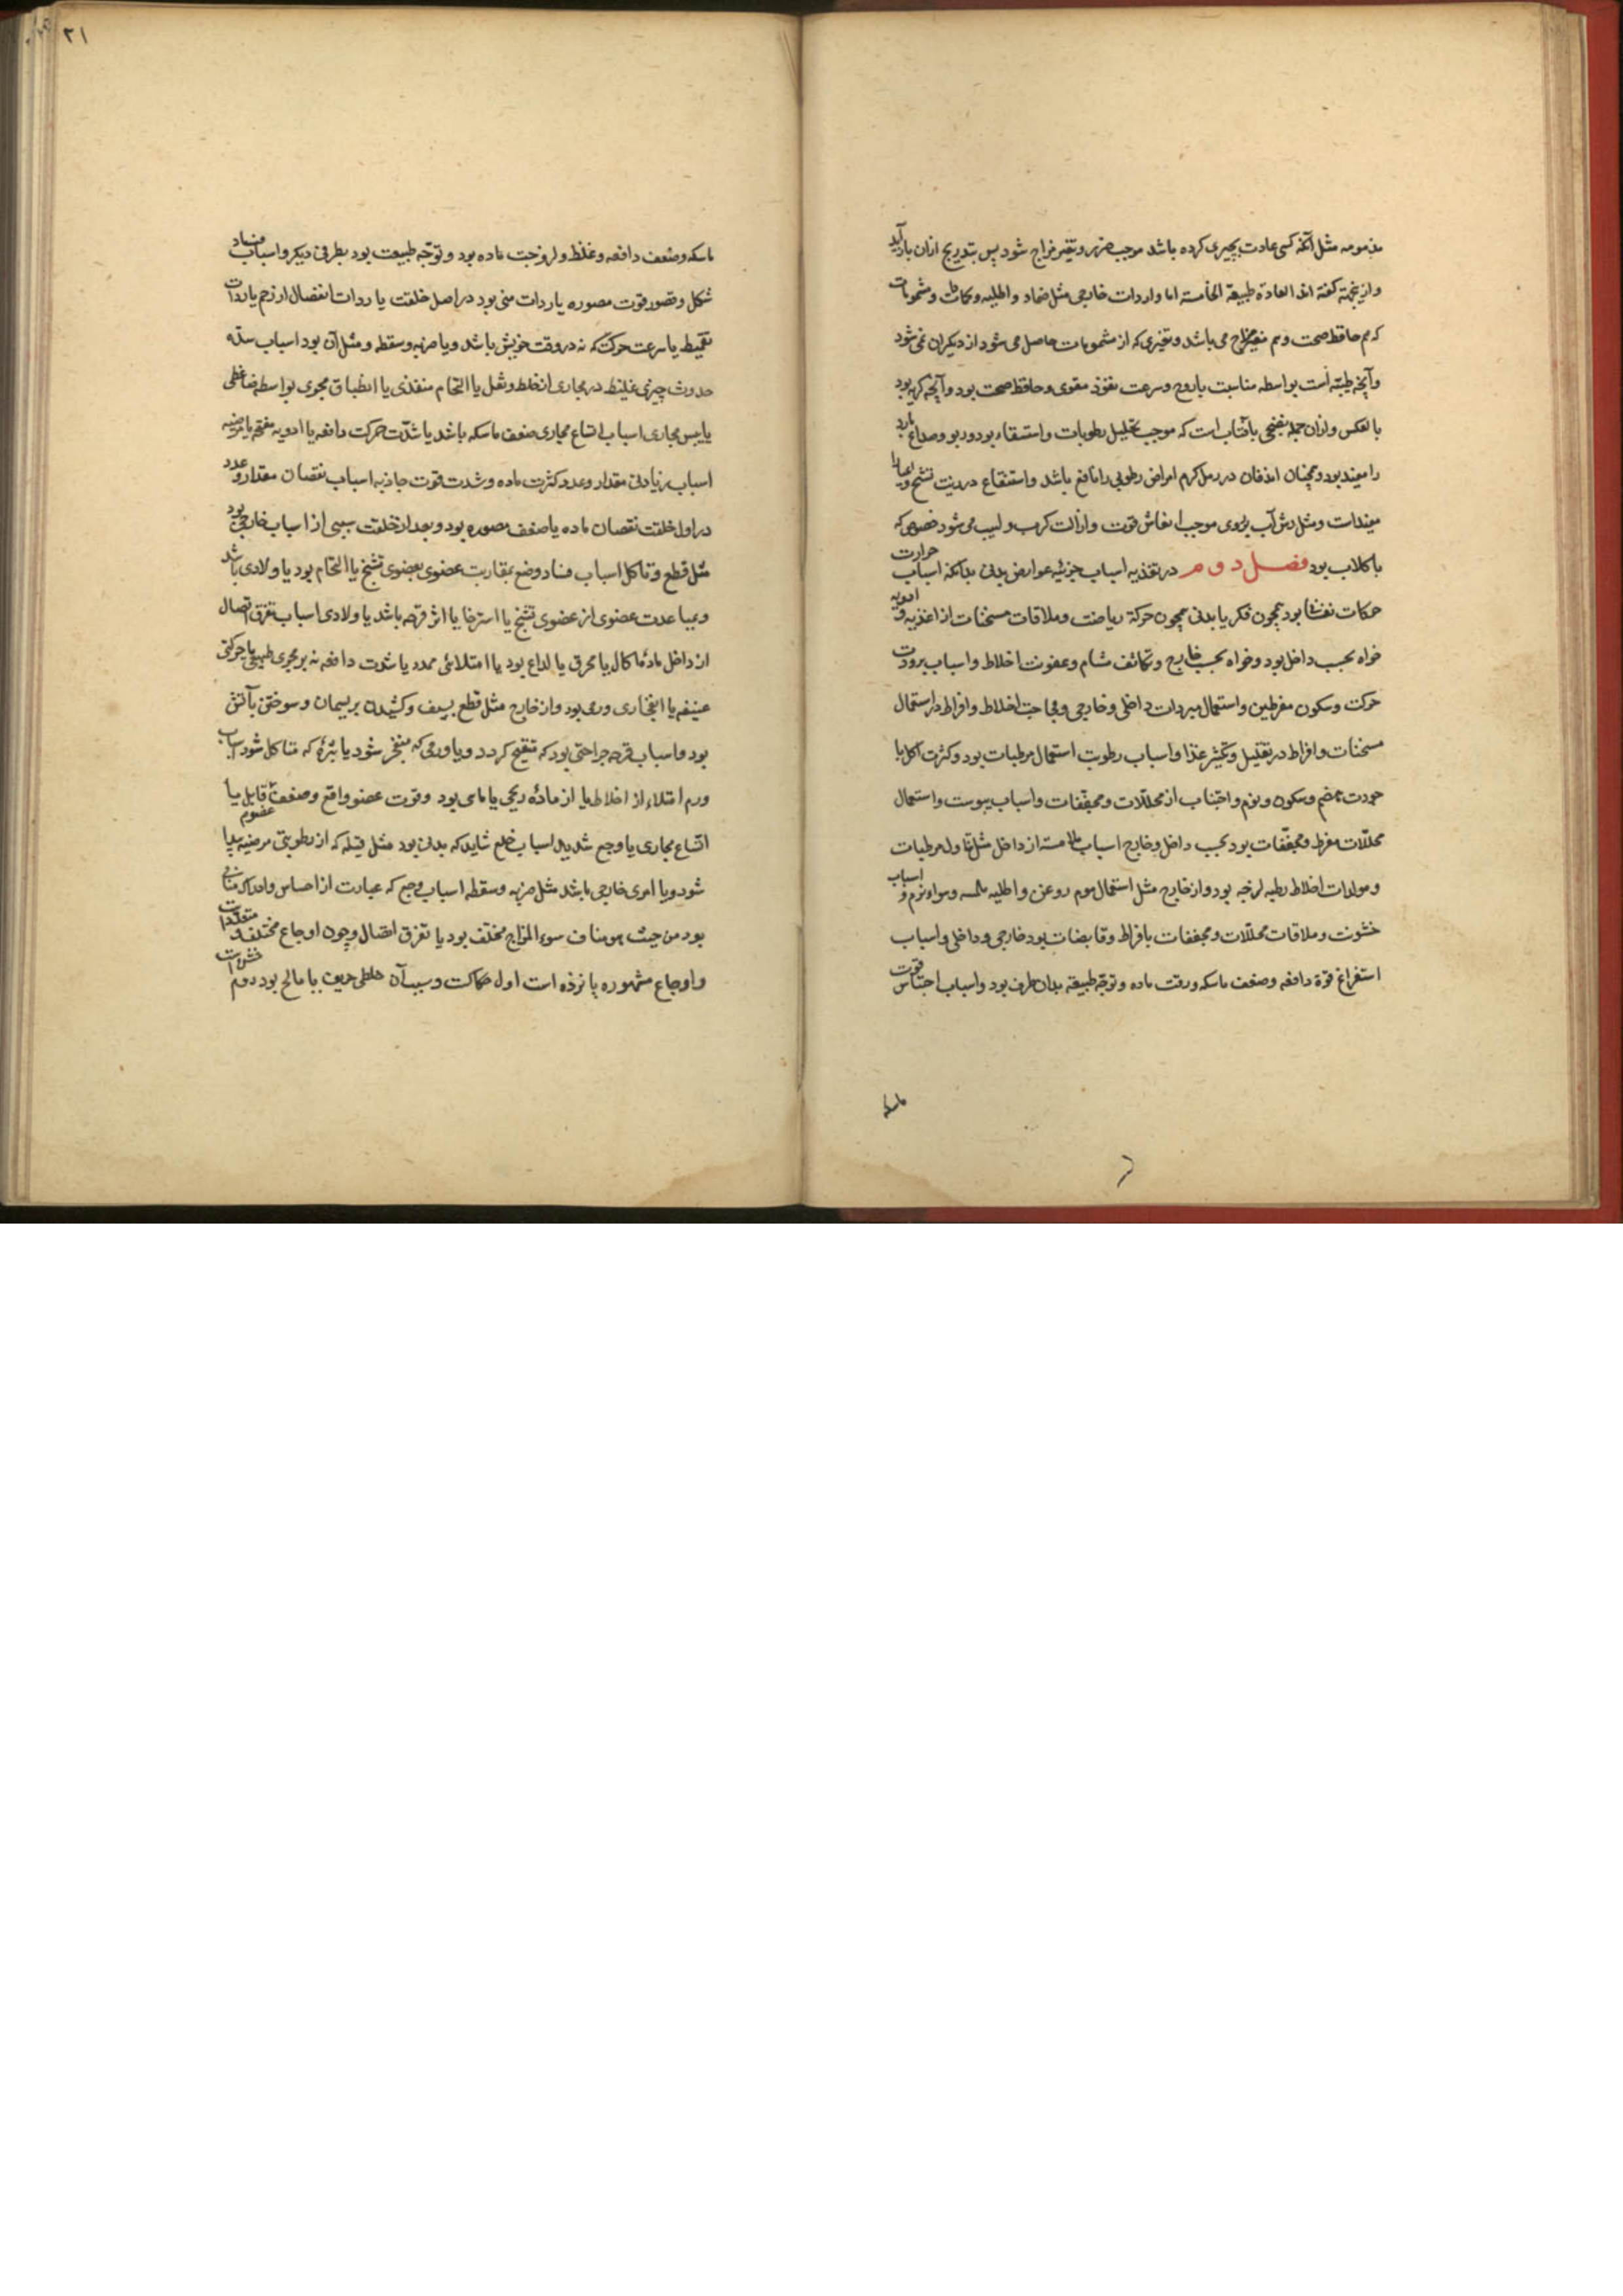 مذمومه مثل آنکه کسی عادت بچیزی کرده باشد موجب ضرر و تغیر مزاج شود پس بتدریج ازان باز آید
و ازینجهة کفته اند العادة طبیعة الخامسة اما واردات خارجی مثل ضماد و اطلیه و نمکات و مشمومات
که هم حافظ صحت و هم مغیر مزاج می باشد و تغیری که از مشمومات حاصل می شود از دیکران نمی شود
و آنچه طیبه است بواسطه مناسبت با روح و سرعت نفوذ مقوی و حافظ صحت بود و آنچه کریه بود
بالعکس و ازان جمله تضحی بآفتاب است که موجب تحلیل رطوبات و استسقاء بود و ربو و صداع بارد
را مفید بود و همچنان اندفان در رمل کرم امراض رطوبی را نافع باشد و استنقاع در زیت تشنج و اعیا را
مفید است و مثل رش آب بروی موجب انعاش قوت و ازالت کرب و لهیب می شود خصوصی که
با کلاب بود فصل دوم در تقدیه اسباب جزئیه عوارض بدنی بدانکه اسباب حرارت
حرکات نفسانی بود همچون فکر یا بدنی همچون حرکة ریاضت و ملاقات مسخنات از اغذیه و ادویه
خواه بحسب داخل بود و خواه بحسب خارج و تکاثف مشام و عفونت اخلاط و اسباب برودت
حرکت و سکون مفرطین و استعمال مبردات داخلی و خارجی و فجاجت اخلاط و افراط در استعمال
مسخنات و افراط در تقلیل و تکثیر غذا و اسباب رطوبت استعمال مرطبات بود و کثرت اکل با
جودت هضم و سکون و نوم و اجتناب از محللات و مجففات و اسباب یبوست و استعمال
محللات مفرط و مجففات بود بحسب داخل و خارج اسباب ملامسة از داخل مثل تناول مرطبات
و مولدات اخلاط رطبه لزجه بود و از خارج مثل استعمال موم روغن و اطلیه و اسباب
خشونت و ملاقات محللات و مجففات بافراط و قابضات بود خارجی و داخلی و اسباب
استفراغ قوة دافعه و ضعف ماسکه و رقت ماده و توجه طبیعة بدان طرف بود و اسباب احتباس قوت
ماسکه
۲۱
ماسکه و ضعف دافعه و غلظ و لزوجت ماده بود و توجه طبیعت بود بطرفی دیکر و اسباب فساد
شکل و قصور قوت مصوره یا ردات منی بود در اصل خلقت یا ردات انفصال از رحم یا ردات
تقمیط یا سرعت حرکت که نه در وقت خویش باشد و یا ضربه و سقطه و مثل آن بود اسباب سده
حدوث چیزی غلیظ در مجاری از غلظ و ثفل یا التحام منفذی یا انطباق مجری بواسطه ضاغطی
یا یبس مجاری اسباب اتساع مجاری ضعف ماسکه باشد یا شدت حرکت دافعه یا ادویه مفتحه یا مرخیه
اسباب زیادتی مقدار و عدد کثرت ماده و شدت قوت جاذبه اسباب نقصان مقدار و عدد
در اول خلقت نقصان ماده یا ضعف مصوره بود و بعد از خلقت سببی از اسباب خارجی بود
مثل قطع و تاکل اسباب فساد وضع بمقاربت عضوی بعضوی تشنج یا التحام بود یا ولادی باشد
و بمباعدت عضوی از عضوی تشنج یا استرخا یا اثر قرحه باشد یا ولادی اسباب تفرق اتصال
از داخل مادۀ اکال یا محرق یا لداع بود یا امتلائی ممدد یا شدت دافعه نه بر مجری طبیعی یا حرکتی
عنیفه یا انفجاری ورمی بود و از خارج مثل قطع بسیف و کشیدن بریسمان و سوختن بآتش
بود و اسباب قرحه جراحتی بود که متقیح کردد و یا ورمی که منفجر شود یا بثرۀ که متاکل شود اسباب
ورم امتلاء از اخلاط یا از مادۀ ریحی یا مایی بود و قوت عضو واقع و ضعف عضو قابل یا
اتساع مجاری یا وجع شدید اسباب خلع شاید که بدنی بود مثل قیله که از رطوبتی مرخیه پیدا
شود و یا امری خارجی باشد مثل ضربه و سقطه اسباب وجع که عبارت از احساس و ادراک منافی
بود من حیث هو مناف سوء المزاج مختلف بود یا تفرق اتصال و چون اوجاع مختلف و متعدد است
و اوجاع مشهوره پانزده است اول حکاکت و سبب آن خلطی حریف یا مالح بود دوم خشونت